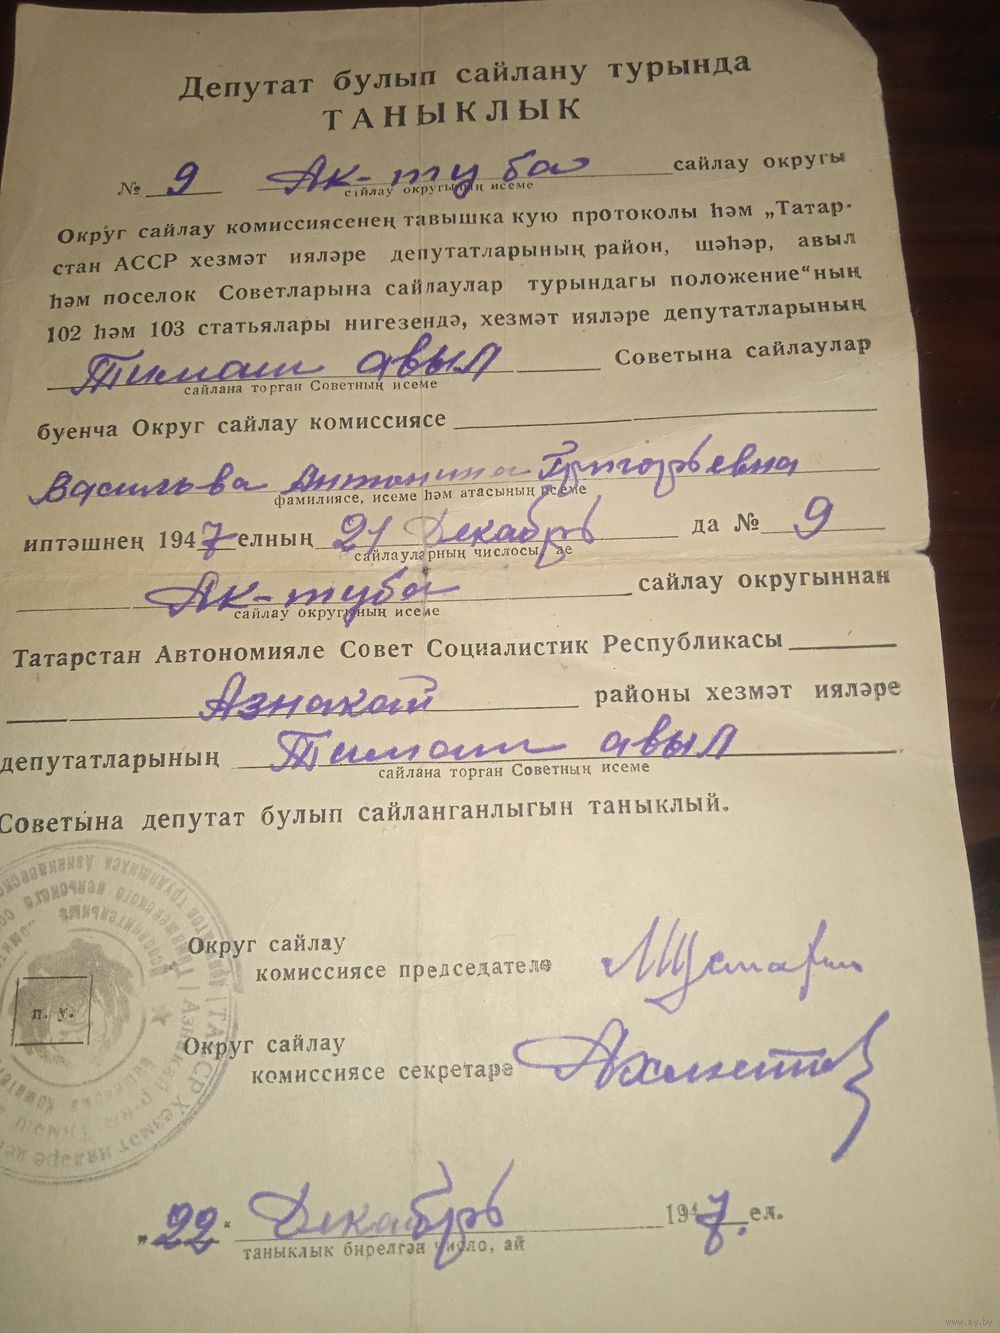 Депутат булып сайлану турында
ТАНЫКЛЫК
№ 9 Ак-туба сайлау округы
сайлау округының исеме
Округ сайлау комиссиясенең тавышка кую протоколы һәм „Татар-
стан АССР хезмәт ияләре депутатларының район, шәһәр, авыл
һәм поселок Советларына сайлаулар турындагы положение“ның
102 һәм 103 статьялары нигезендә, хезмәт ияләре депутатларының
Тимаш авыл Советына сайлаулар
сайлана торган Советның исеме
буенча Округ сайлау комиссиясе
Васильва Антонина Григорьевна
фамилиясе, исеме һәм атасының исеме
иптәшнең 1947 елның 21 Декабрь да № 9
сайлауларның числосы, ае
Ак-туба сайлау округыннан
сайлау округының исеме
Татарстан Автономияле Совет Социалистик Республикасы
Азнакай районы хезмәт ияләре
депутатларының Тимаш авыл
сайлана торган Советның исеме
Советына депутат булып сайланганлыгын таныклый.
Округ сайлау
комиссиясе председателе
п. у.
Округ сайлау
комиссиясе секретаре
„22“ Декабрь 1947 ел.
таныклык бирелгән число, ай
www.ay.by